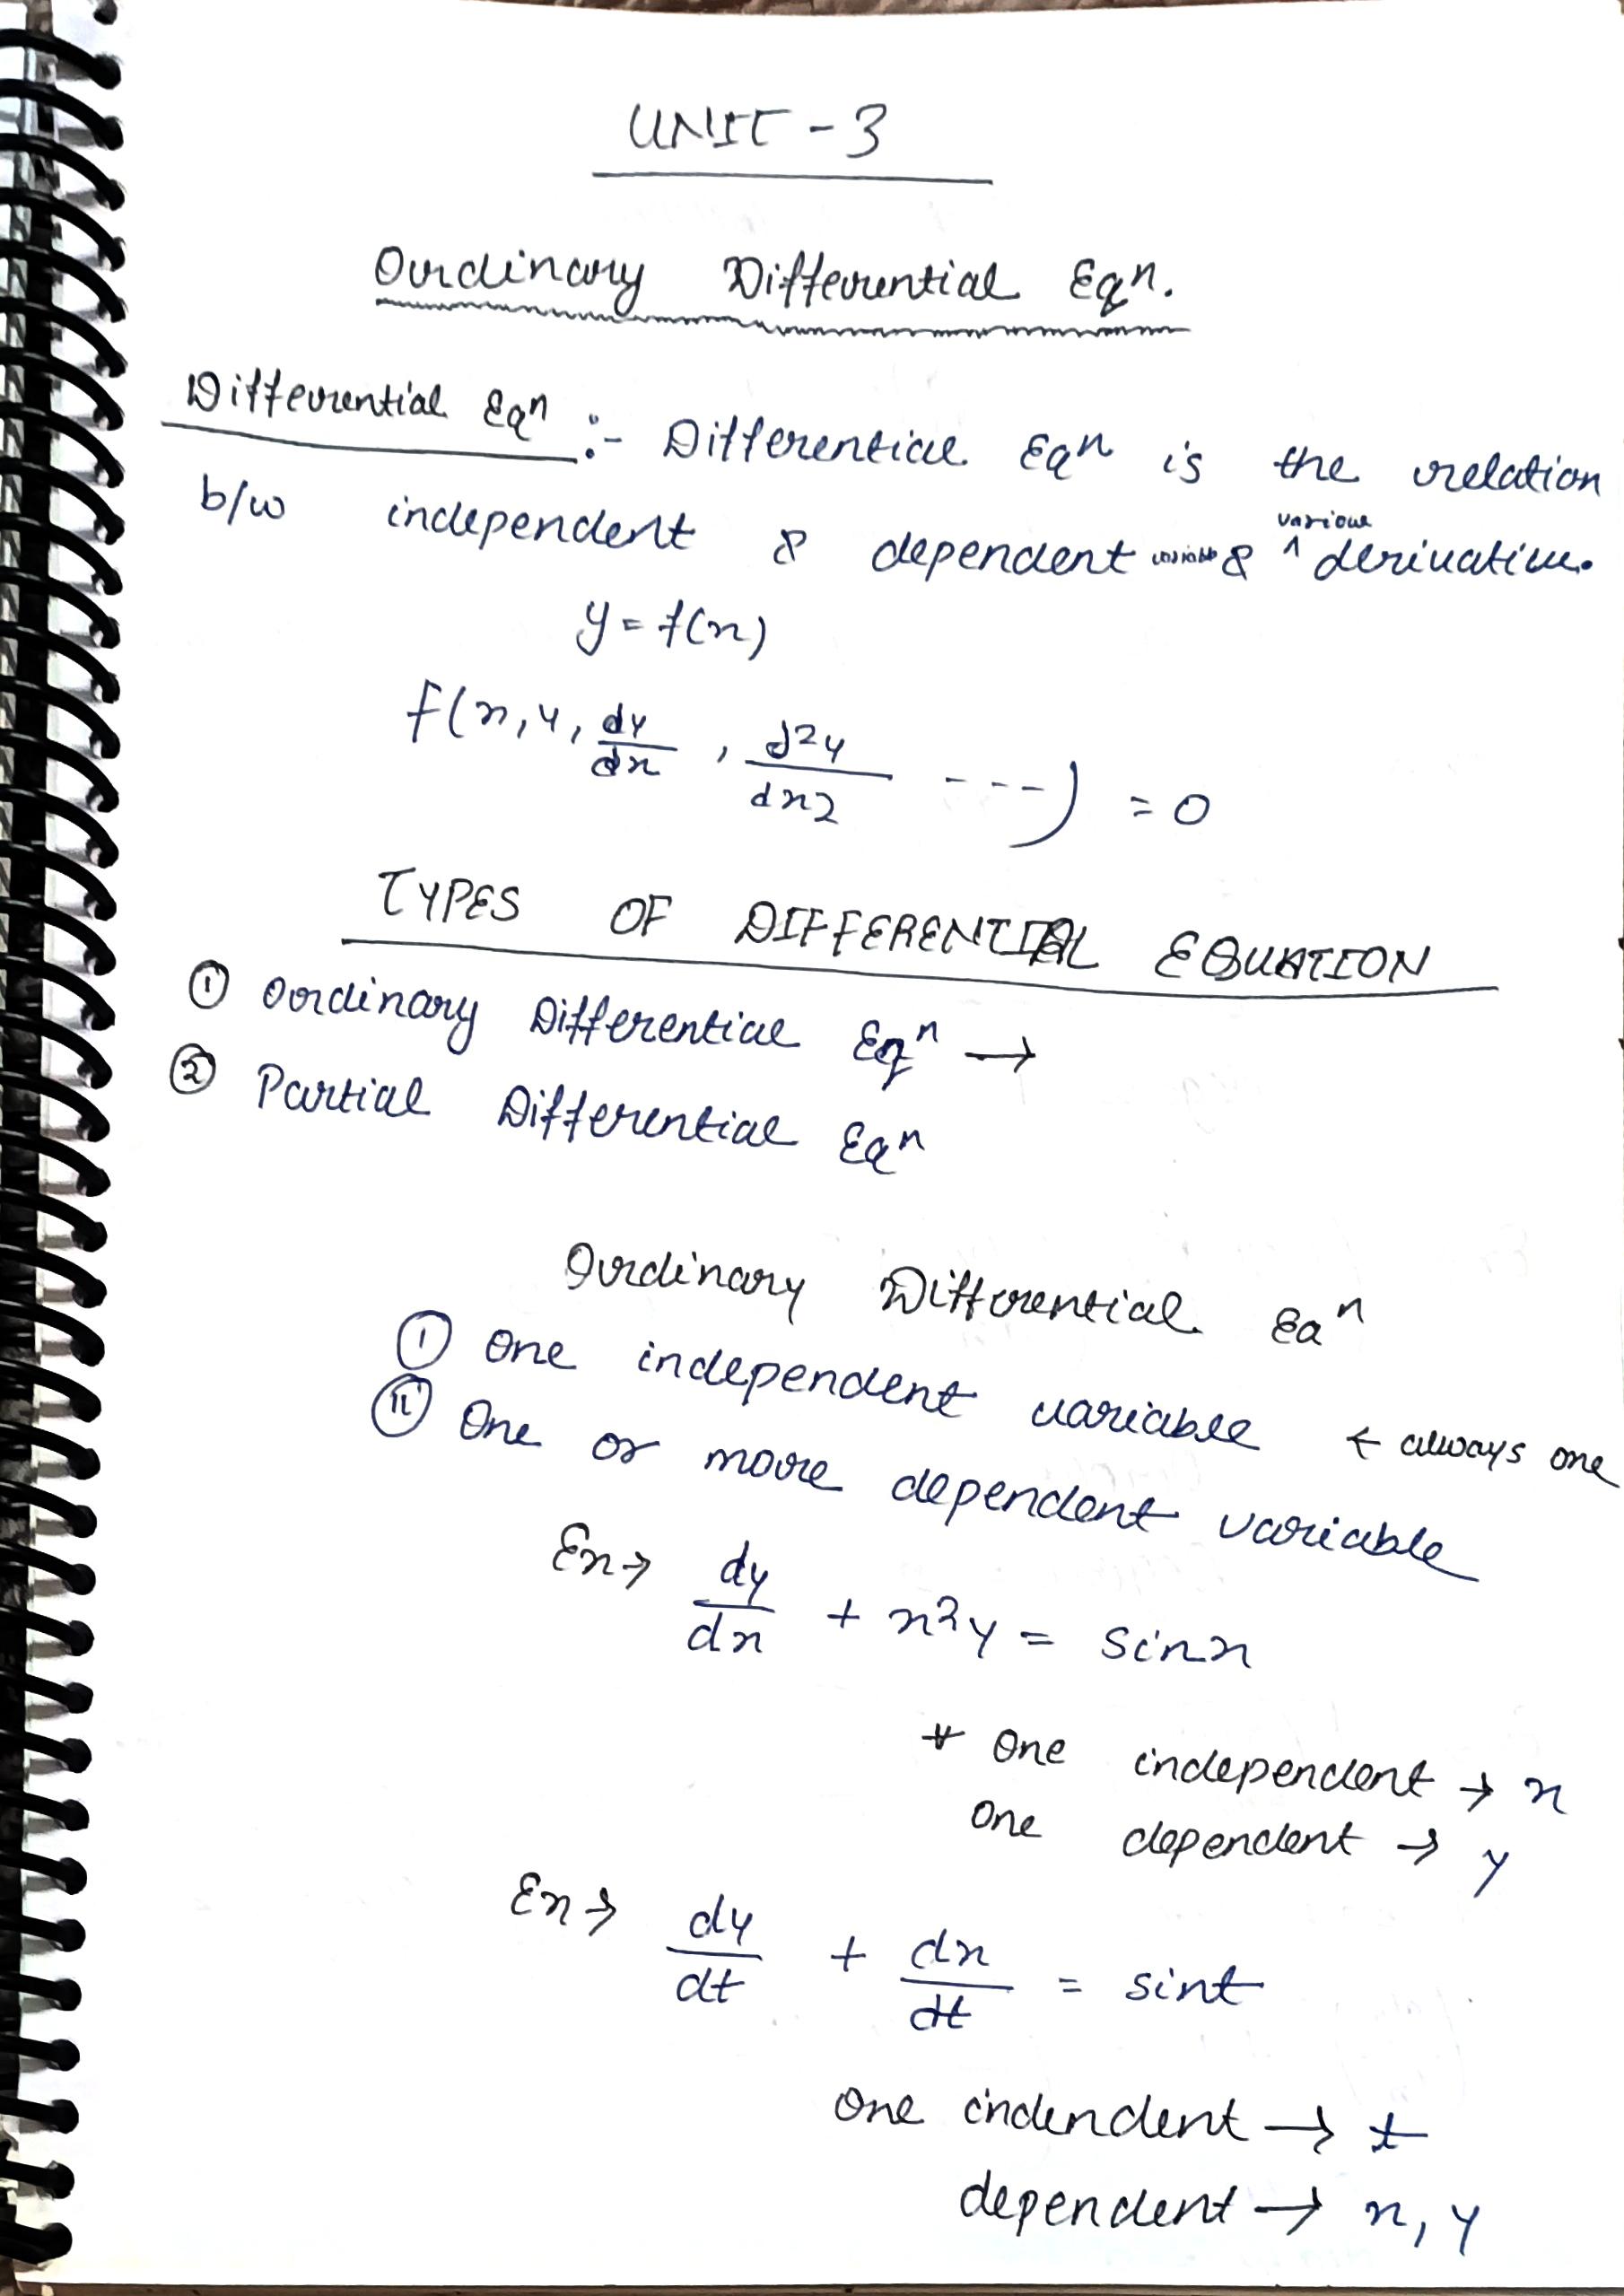 UNIT - 3
Ordinary Differential Eqⁿ.
Differential Eqⁿ :- Differential Eqⁿ is the relation
b/w independent & dependent variable & ^ various derivative.
y = f(x)
f(x, y, dy/dx, d²y/dx2 ---) = 0
TYPES OF DIFFERENTIAL EQUATION
① Ordinary Differential Eqⁿ →
② Partial Differential Eqⁿ
Ordinary Differential Eqⁿ
Ⓘ One independent variable ← always one
ⓘⓘ One or more dependent variable
Ex → dy/dx + x²y = sinx
* One independent → x
One dependent → y
Ex → dy/dt + dx/dt = sint
One indendent → t
dependent → x, y